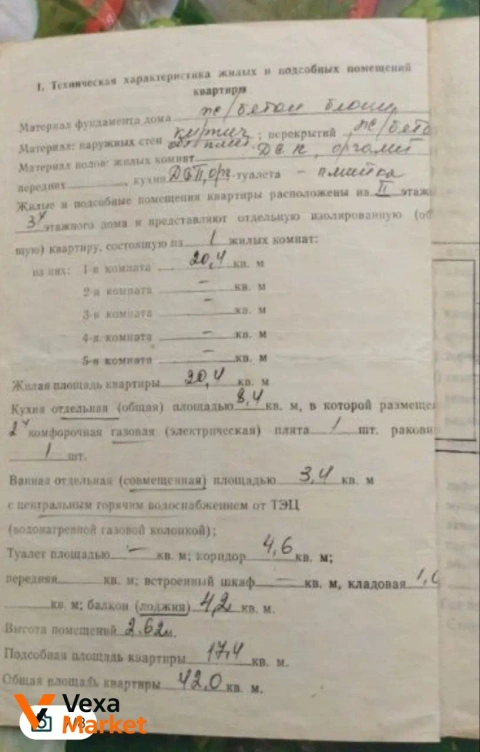 I. Техническая характеристика жилых и подсобных помещений
квартиры
Материал фундамента дома ж/бетон блоки
Материал: наружных стен кирпич ; перекрытий ж/бето
Материал полов: жилых комнат ДСП, оргалит
передних , кухни ДСП, орг. туалета – плитка
Жилые и подсобные помещения квартиры расположены на II этаже
3х этажного дома и представляют отдельную изолированную (об
щую) квартиру, состоящую из 1 жилых комнат:
из них: 1-я комната 20,4 кв. м
2-я комната – кв. м
3-я комната – кв. м
4-я комната – кв. м
5-я комната – кв. м
Жилая площадь квартиры 20,4 кв. м
Кухня отдельная (общая) площадью 8,4 кв. м, в которой размеще
2х комфорочная газовая (электрическая) плита 1 шт. ракови
1 шт.
Ванная отдельная (совмещенная) площадью 3,4 кв. м
с центральным горячим водоснабжением от ТЭЦ
(водонагревной газовой колонкой);
Туалет площадью – кв. м; коридор 4,6 кв. м;
передняя кв. м; встроенный шкаф – кв. м, кладовая
кв. м; балкон (лоджия) 4,2 кв. м.
Высота помещений 2.62 м.
Подсобная площадь квартиры 17,4 кв. м.
Общая площадь квартиры 42,0 кв. м.
Vexa
Market